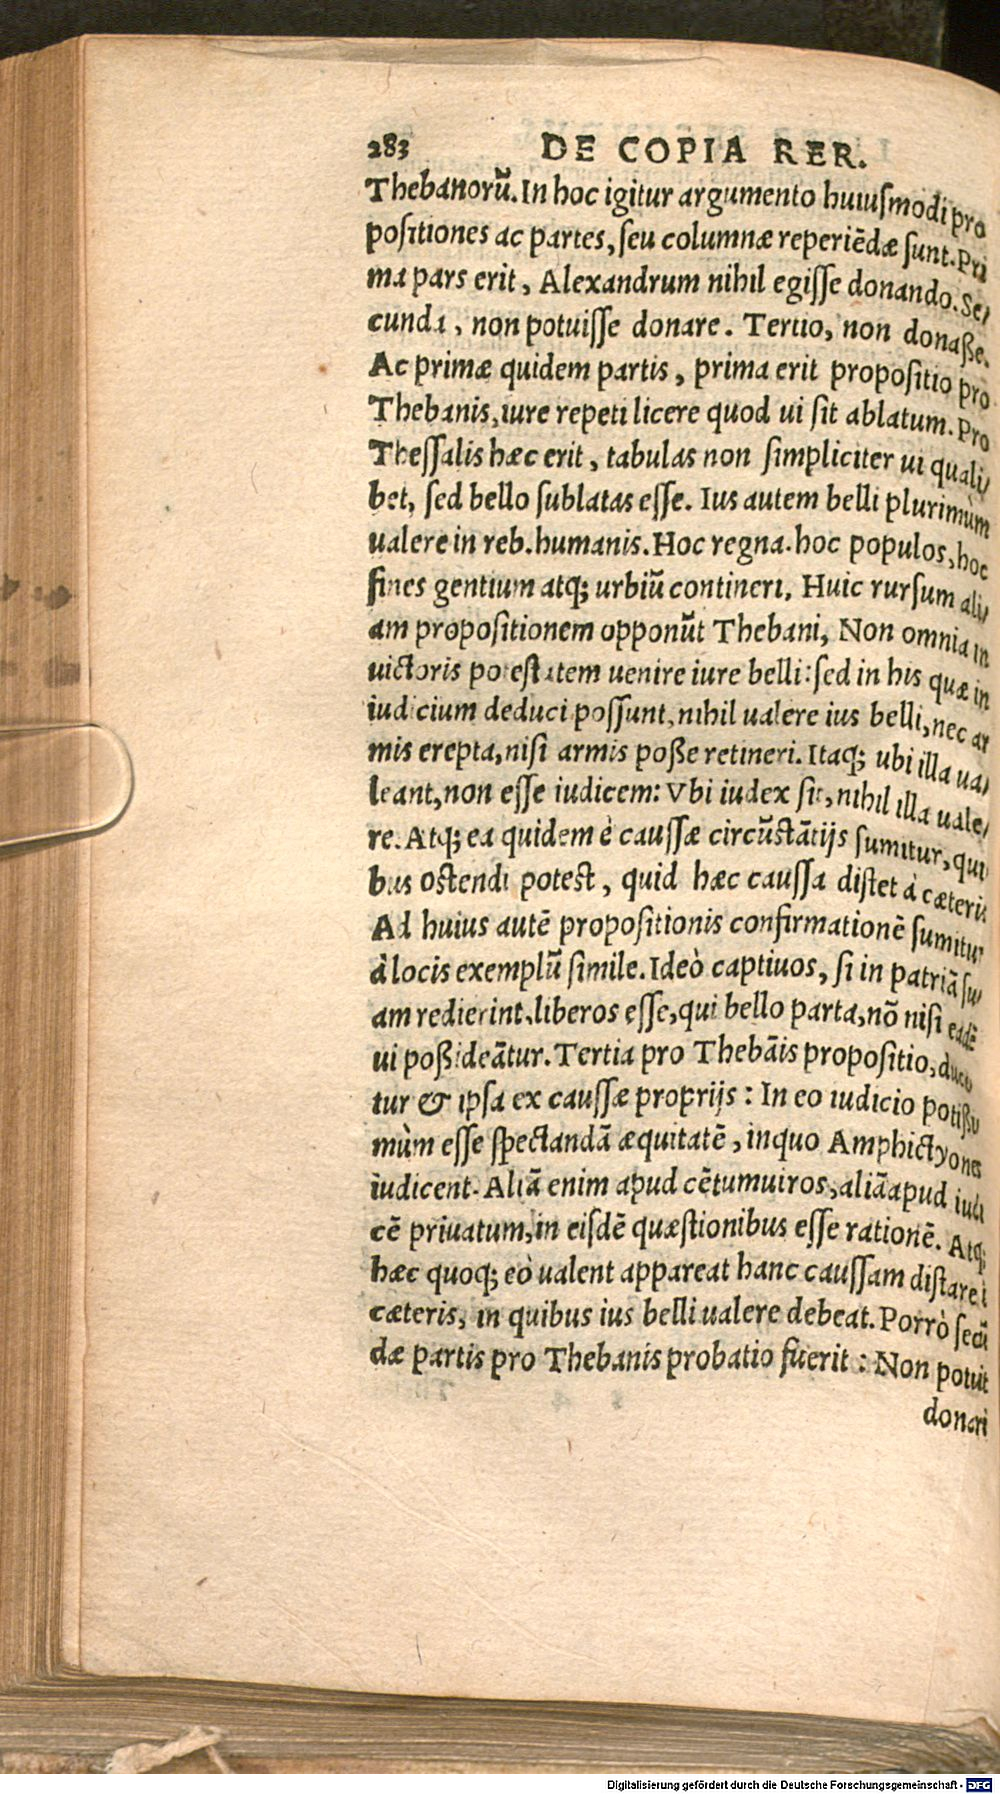 283 DE COPIA RER.
Thebanorū. In hoc igitur argumento huiuſmodi pro
poſitiones ac partes, ſeu columnæ reperiēdæ ſunt. Pri
ma pars erit, Alexandrum nihil egiſſe donando. Se⸗
cunda, non potuiſſe donare. Tertio, non donaße.
Ac primæ quidem partis, prima erit propoſitio pro
Thebanis, iure repeti licere quod ui ſit ablatum. Pro
Theſſalis hæc erit, tabulas non ſimpliciter ui quali⸗
bet, ſed bello ſublatas eſſe. Ius autem belli plurimùm
ualere in reb. humanis. Hoc regna. hoc populos, hoc
fines gentium atq; urbiū contineri. Huic rurſum ali⸗
am propoſitionem opponūt Thebani, Non omnia in
uictoris poteſtatem uenire iure belli: ſed in his quæ in
iudicium deduci poſſunt, nihil ualere ius belli, nec ar
mis erepta, niſi armis poße retineri. Itaq; ubi illa ua⸗
leant, non eſſe iudicem: Vbi iudex ſit, nihil illa uale⸗
re. Atq; ea quidem è cauſſæ circūſtātijs ſumitur, qui
bus oſtendi poteſt, quid hæc cauſſa diſtet à cæteris
Ad huius autē propoſitionis confirmationē ſumitur
à locis exemplū ſimile. Ideò captiuos, ſi in patriā ſu⸗
am redierint, liberos eſſe, qui bello parta, nō niſi eadē
ui poßideātur. Tertia pro Thebāis propoſitio, duci⸗
tur & ipſa ex cauſſæ proprijs: In eo iudicio potißi⸗
mùm eſſe ſpectandā æquitatē, in quo Amphictyones
iudicent. Aliā enim apud cētumuiros, aliā apud iudi
cē priuatum, in eiſdē quæſtionibus eſſe rationē. Atq;
hæc quoq; eò ualent appareat hanc cauſſam diſtare à
cæteris, in quibus ius belli ualere debeat. Porrò ſecū
dæ partis pro Thebanis probatio fuerit: Non potuit
donari
Digitalisierung gefördert durch die Deutsche Forschungsgemeinschaft - DFG